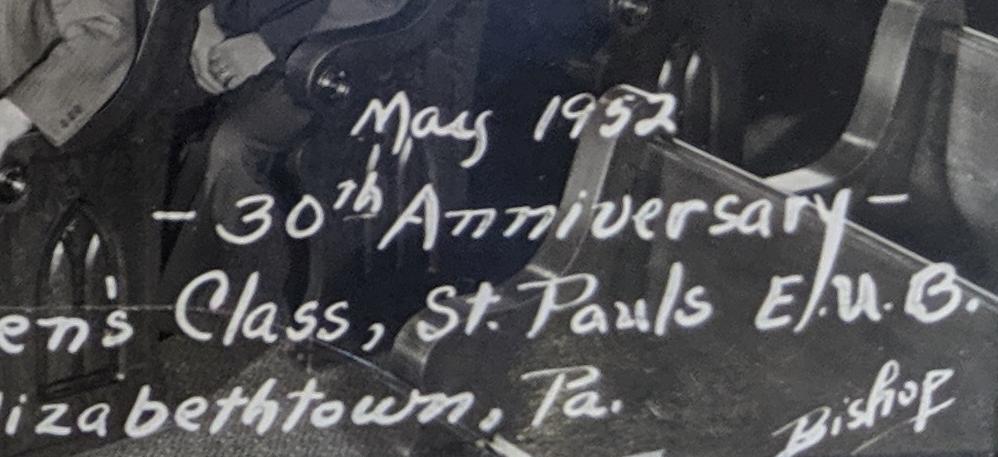 May 1952
- 30th Anniversary -
en's Class, St. Pauls E.U.B.
lizabethtown, Pa.
Bishop